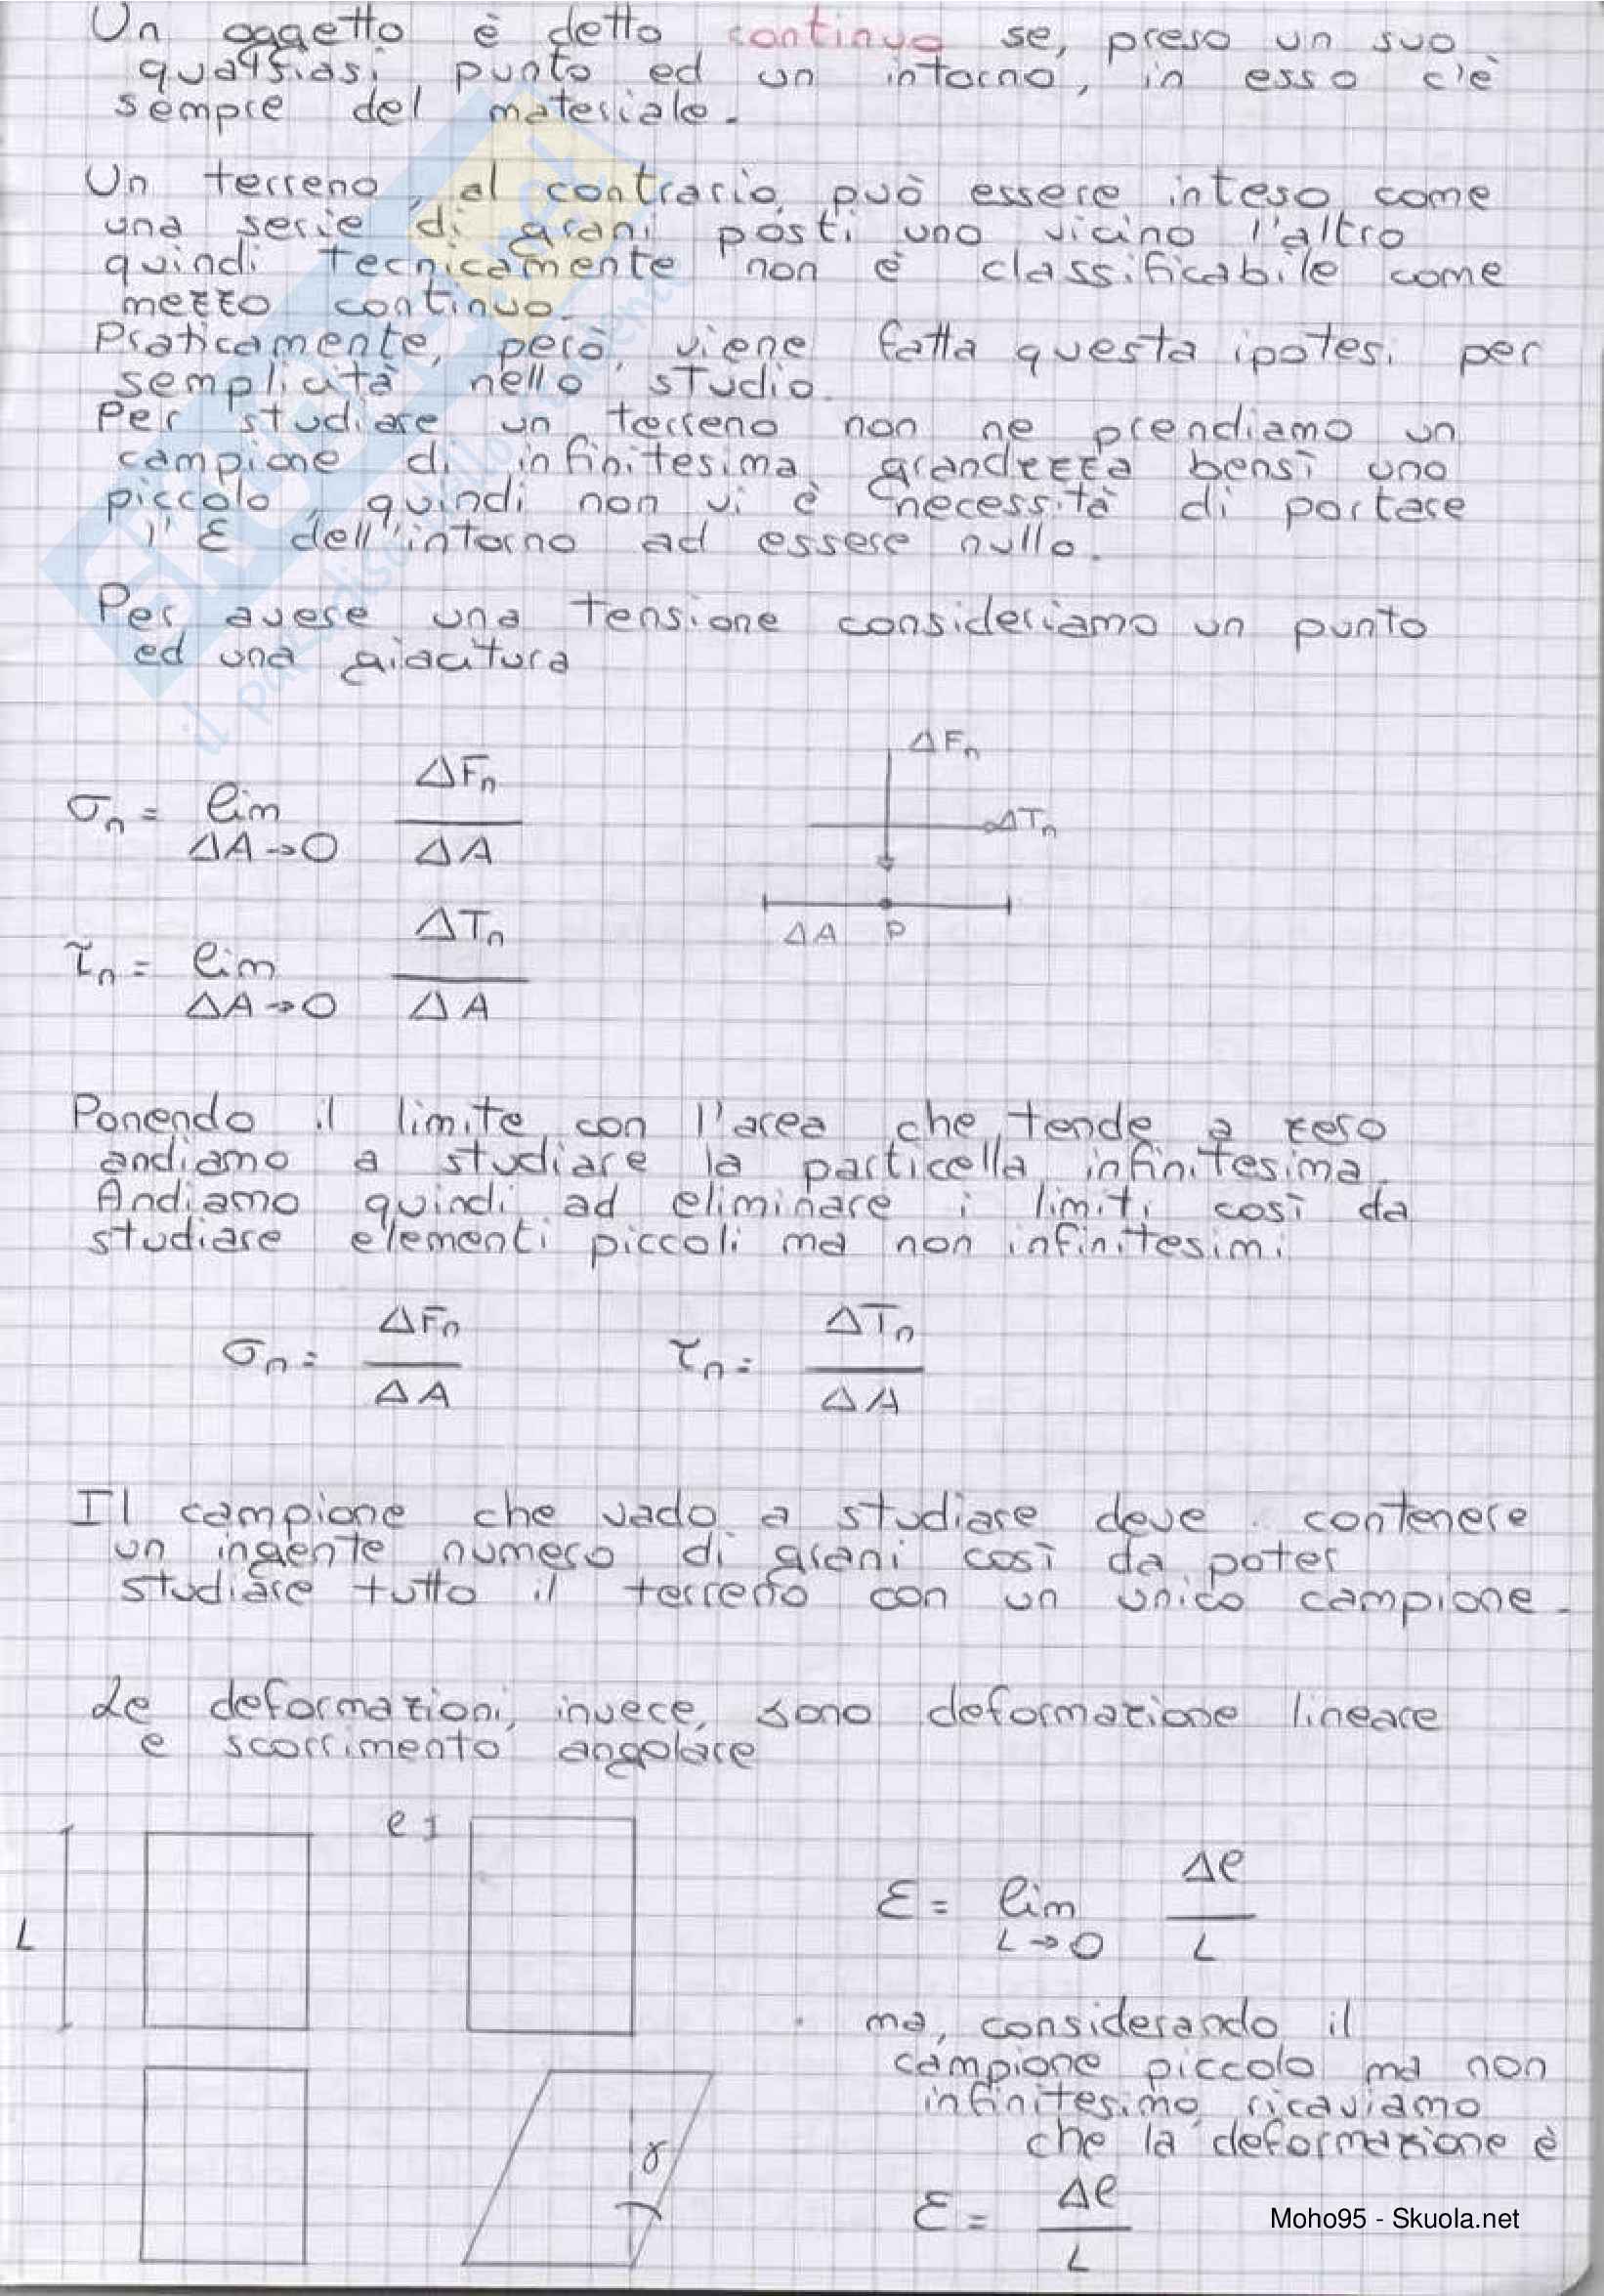 Un oggetto è detto continuo se, preso un suo
qualsiasi punto ed un intorno, in esso c'è
sempre del materiale.
Un terreno, al contrario, può essere inteso come
una serie di grani posti uno vicino l'altro
quindi tecnicamente non è classificabile come
mezzo continuo.
Praticamente, però, viene fatta questa ipotesi per
semplicità nello studio.
Per studiare un terreno non ne prendiamo un
campione di infinitesima grandezza bensì uno
piccolo, quindi non vi è necessità di portare
l'ε dell'intorno ad essere nullo.
Per avere una tensione consideriamo un punto
ed una giacitura
σn = lim ΔA→0 ΔFn / ΔA
ΔFn
ΔTn
ΔA P
τn = lim ΔA→0 ΔTn / ΔA
Ponendo il limite con l'area che tende a zero
andiamo a studiare la particella infinitesima.
Andiamo quindi ad eliminare i limiti così da
studiare elementi piccoli ma non infinitesimi
σn = ΔFn / ΔA τn = ΔTn / ΔA
Il campione che vado a studiare deve contenere
un ingente numero di grani così da poter
studiare tutto il terreno con un unico campione.
Le deformazioni, invece, sono deformazione lineare
e scorrimento angolare
L
ℓ
ε = lim L→0 Δℓ / L
ma, considerando il
campione piccolo ma non
infinitesimo ricaviamo
che la deformazione è
γ
ε = Δℓ / L
Moho95 - Skuola.net